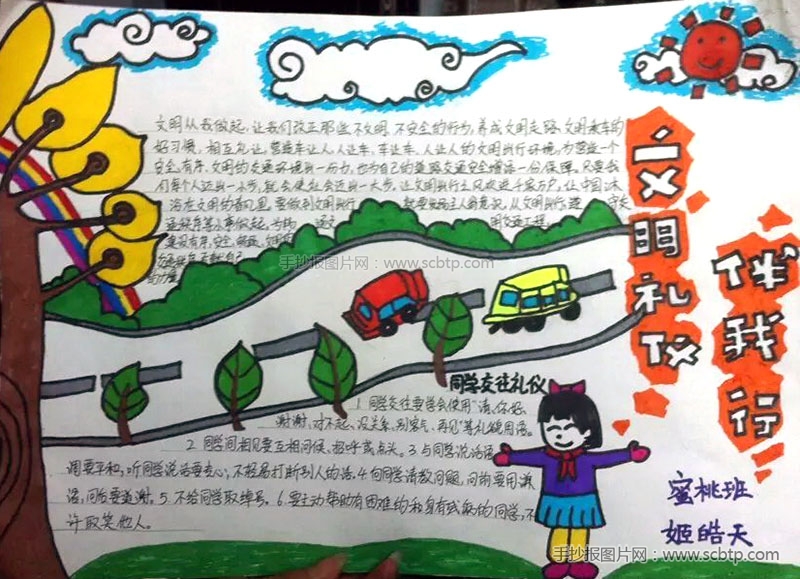 文明从我做起,让我们改正那些不文明、不安全的行为,养成文明走路、文明乘车的
好习惯。相互礼让,营造车让人、人让车、车让车、人让人的文明出行环境,为营造一个
安全、有序、文明的交通环境出一份力,也为自己的道路交通安全增添一份保障。只要我
们每个人迈出一小步,就会使社会迈出一大步。让文明出行之风吹进千家万户,让中国沐
浴在文明的春风里。要做到文明出行 就要
文明礼仪
伴我行
手抄报图片网:www.scbtp.com
同学交往礼仪
1.同学交往要学会使用“请、你好、
谢谢、对不起、没关系、别客气、再见”等礼貌用语。
2.同学间相见要互相问候、招呼或点头。3.与同学说话语
调要平和,听同学说话要专心,不轻易打断别人的话。4.向同学请教问题,问前要用谦
语,问后要道谢。5.不给同学取绰号。6.要主动帮助有困难的和身有残缺的同学,不
许取笑他人。
蜜桃班
姬皓天
手抄报图片网:www.scbtp.com